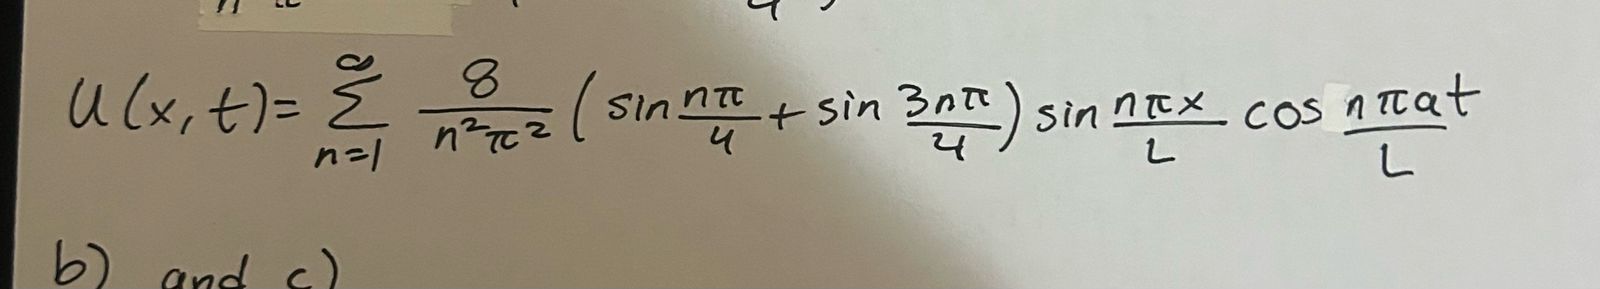 u(x,t)= ∞ Σ n=1 8/n²π² ( sin nπ/4 + sin 3nπ/4 ) sin nπx/L cos nπat/L
b) and c)